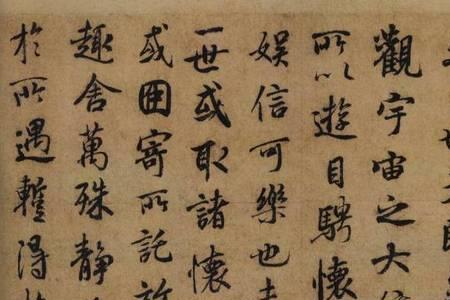 觀宇宙之大
所以遊目騁懷
娛信可樂也夫
一世或取諸懷
或因寄所託放
趣舍萬殊静
於所遇蹔得